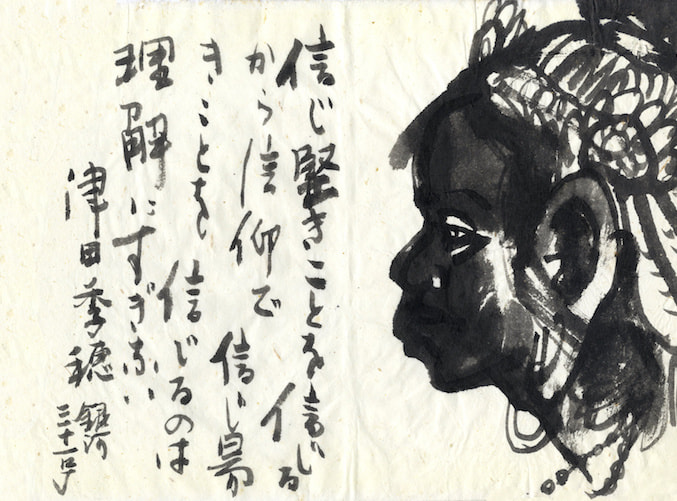 信じ堅きことを信じる
から信仰で 信じ易
きことを 信じるのは
理解にすぎない
津田季穂
銀河
三十一号